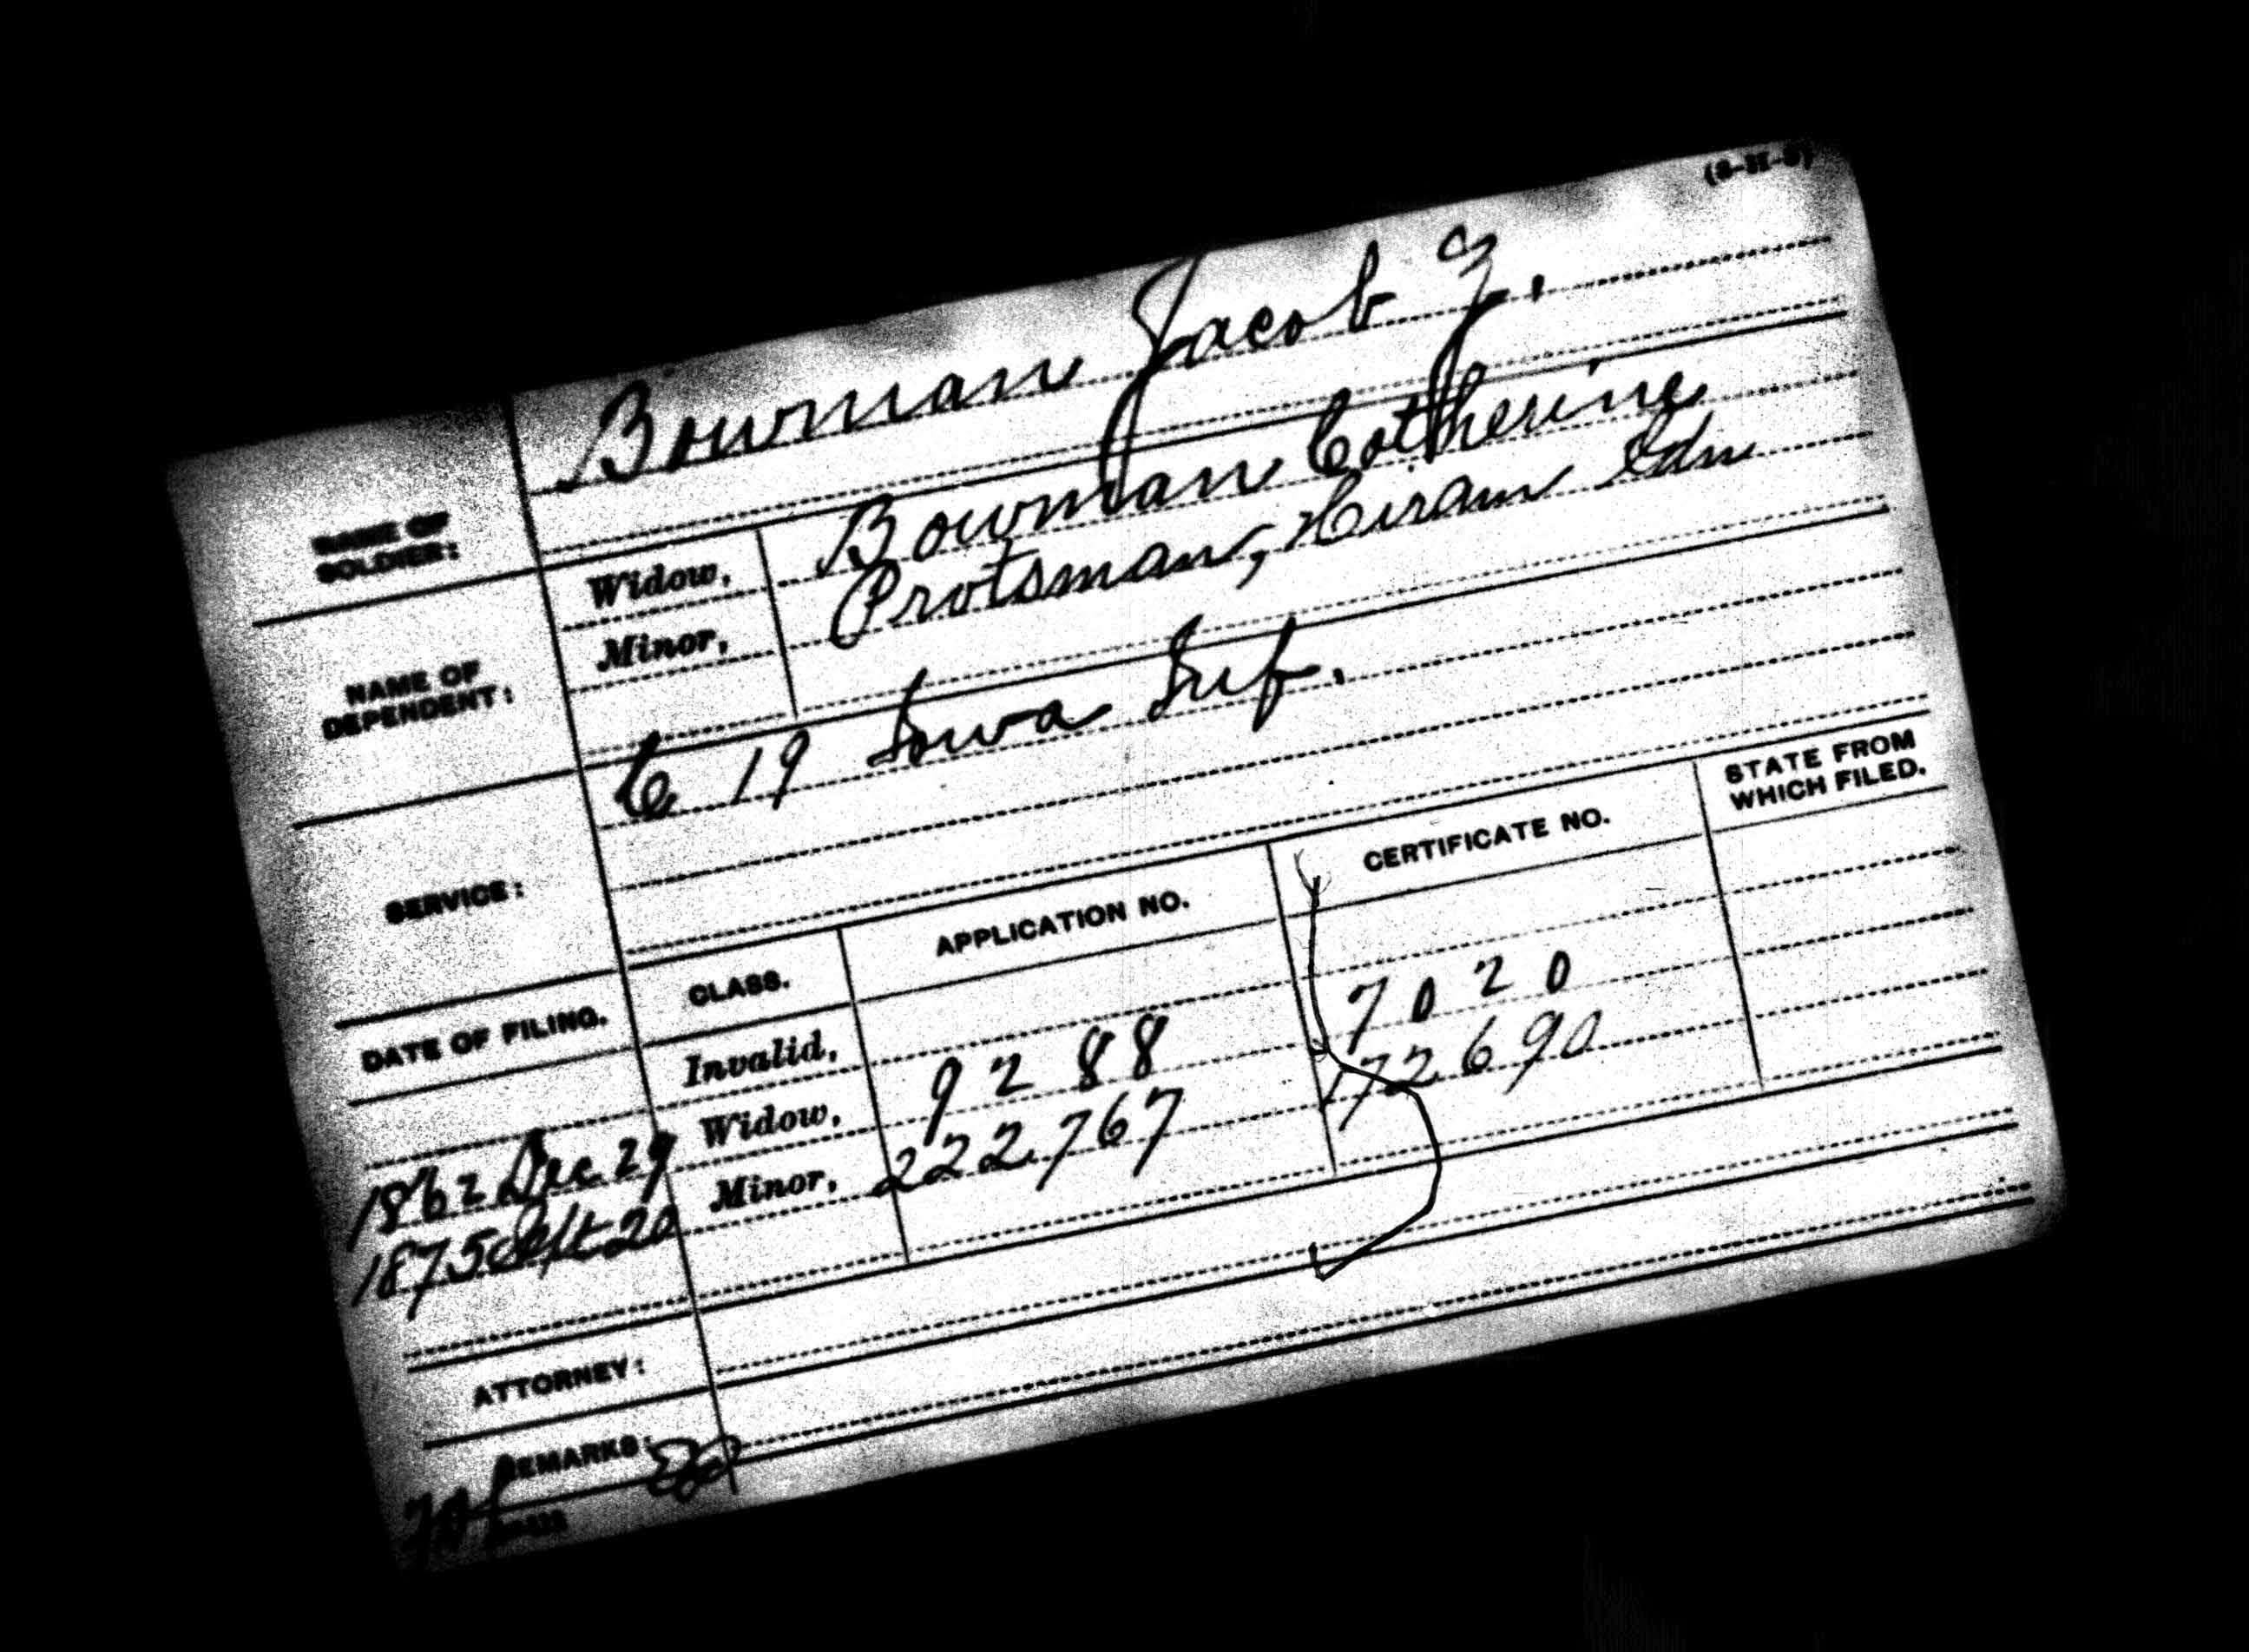 (3-11-3)
NAME OF SOLDIER: Bowman Jacob Z.
NAME OF DEPENDENT:
Widow, Bowman Catherine
Minor, Protsman, Hiram Gdn
SERVICE: C 19 Iowa Inf.
DATE OF FILING. CLASS. APPLICATION NO. CERTIFICATE NO. STATE FROM WHICH FILED.
Invalid,
1862 Dec 29 Widow, 9288 7020
1875 Sept 20 Minor, 222767 172690
ATTORNEY:
REMARKS: